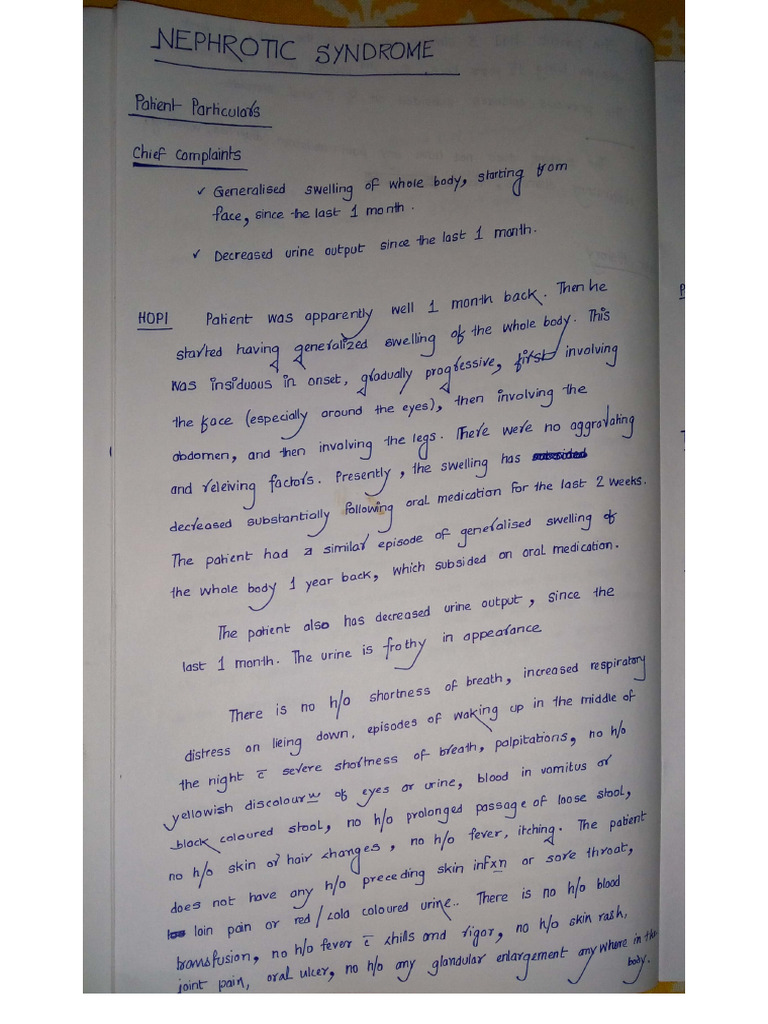 NEPHROTIC SYNDROME
Patient Particulars
Chief Complaints
✓ Generalised swelling of whole body, starting from
face, since the last 1 month.
✓ Decreased urine output since the last 1 month.
HOPI Patient was apparently well 1 month back. Then he
started having generalized swelling of the whole body. This
was insiduous in onset, gradually progressive, first involving
the face (especially around the eyes), then involving the
abdomen, and then involving the legs. There were no aggravating
and releiving factors. Presently, the swelling has
decreased substantially following oral medication for the last 2 weeks.
The patient had a similar episode of generalised swelling of
the whole body 1 year back, which subsided on oral medication.
The patient also has decreased urine output, since the
last 1 month. The urine is frothy in appearance
There is no h/o shortness of breath, increased respiratory
distress on lieing down, episodes of waking up in the middle of
the night c̄ severe shortness of breath, palpitations, no h/o
yellowish discolour of eyes or urine, blood in vomitus or
black coloured stool, no h/o prolonged passage of loose stool,
no h/o skin or hair changes, no h/o fever, itching. The patient
does not have any h/o preceding skin infxn or sore throat,
loin pain or red/cola coloured urine.. There is no h/o blood
transfusion, no h/o fever c̄ chills and rigor, no h/o skin rash,
joint pain, oral ulcer, no h/o any glandular enlargement anywhere in the
body.